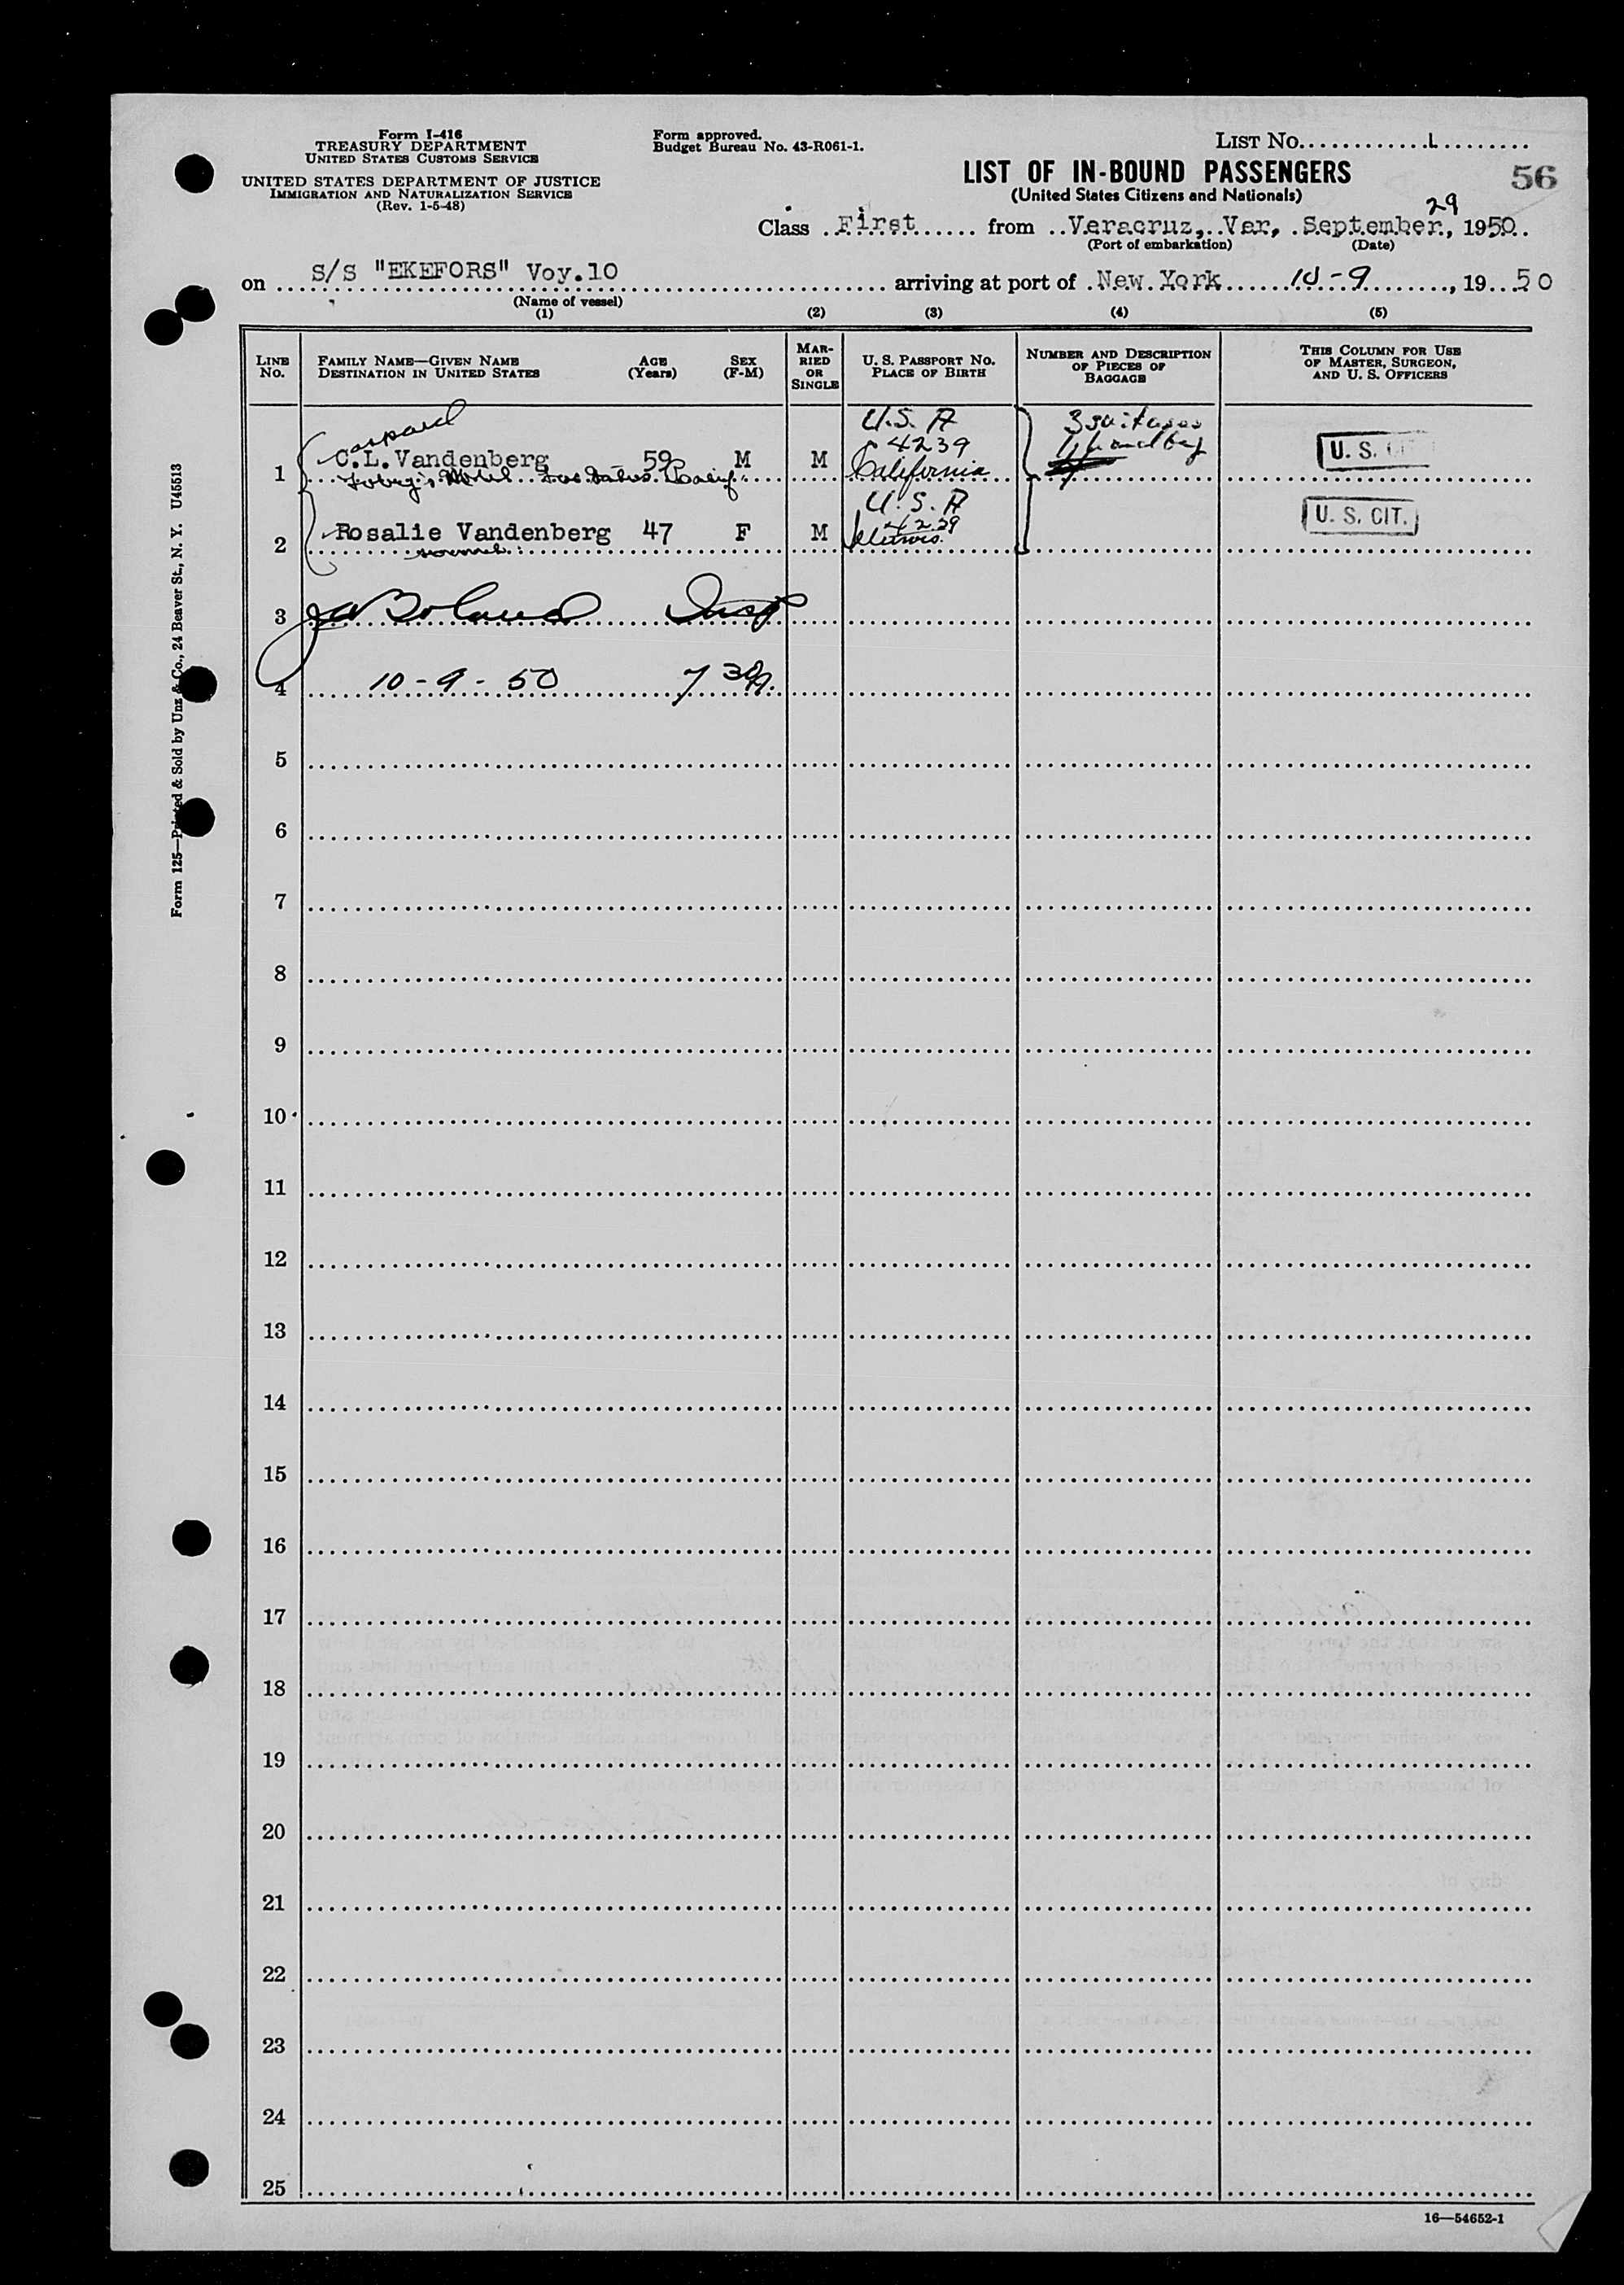 Form I-416
TREASURY DEPARTMENT
UNITED STATES CUSTOMS SERVICE
UNITED STATES DEPARTMENT OF JUSTICE
IMMIGRATION AND NATURALIZATION SERVICE
(Rev. 1-5-48)
Form approved.
Budget Bureau No. 43-R061-1.
LIST No. 1
56
LIST OF IN-BOUND PASSENGERS
(United States Citizens and Nationals)
Class First from Veracruz, Ver, September 29, 1950
(Port of embarkation) (Date)
on S/S "EKEFORS" Voy.10 arriving at port of New York 10-9, 1950
(Name of vessel)
(1) (2) (3) (4) (5)
LINE No. FAMILY NAME—GIVEN NAME DESTINATION IN UNITED STATES AGE (Years) SEX (F-M) MARRIED OR SINGLE U. S. PASSPORT No. PLACE OF BIRTH NUMBER AND DESCRIPTION OF PIECES OF BAGGAGE THIS COLUMN FOR USE OF MASTER, SURGEON, AND U. S. OFFICERS
U.S.A 3 suitcases
1 C.L.Vandenberg 59 M M 4239 1 handbag U. S. CIT
Motel Los Gatos Calif. California
U.S.A
2 Rosalie Vandenberg 47 F M 4239 Illinois U. S. CIT.
3 Boland Insp
4 10-9-50 7 30
5
6
7
8
9
10
11
12
13
14
15
16
17
18
19
20
21
22
23
24
25
16—54652-1
Form 125—Printed & Sold by Unz & Co., 24 Beaver St., N. Y. U45513